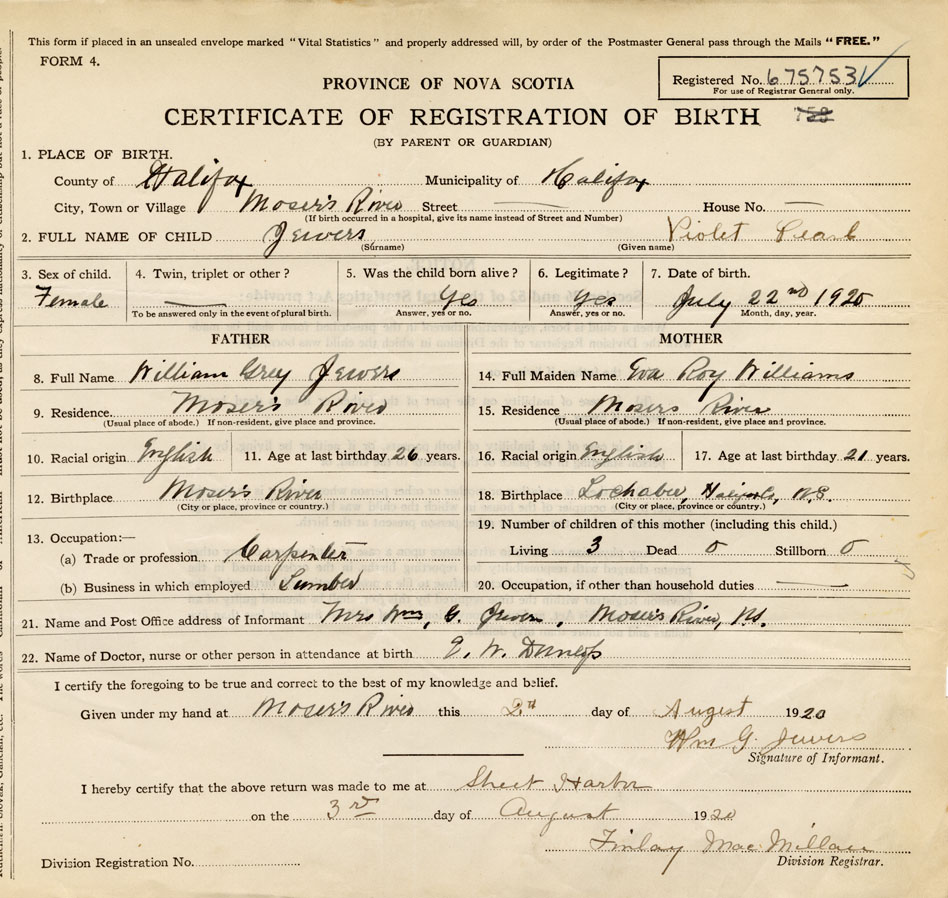 This form if placed in an unsealed envelope marked "Vital Statistics" and properly addressed will, by order of the Postmaster General pass through the Mails "FREE."
FORM 4.
Registered No. 6757531
For use of Registrar General only.
PROVINCE OF NOVA SCOTIA
CERTIFICATE OF REGISTRATION OF BIRTH
(BY PARENT OR GUARDIAN)
1. PLACE OF BIRTH.
County of Halifax Municipality of Halifax
City, Town or Village Moser's River Street — House No. —
(If birth occurred in a hospital, give its name instead of Street and Number)
2. FULL NAME OF CHILD Jewers Violet Pearl
(Surname) (Given name)
3. Sex of child. 4. Twin, triplet or other? 5. Was the child born alive? 6. Legitimate? 7. Date of birth.
Female — Yes Yes July 22nd 1920
To be answered only in the event of plural birth. Answer, yes or no. Answer, yes or no. Month, day, year.
FATHER
8. Full Name William Grey Jewers
9. Residence. Moser's River
(Usual place of abode.) If non-resident, give place and province.
10. Racial origin English 11. Age at last birthday 26 years.
12. Birthplace Moser's River
(City or place, province or country.)
13. Occupation:—
(a) Trade or profession Carpenter
(b) Business in which employed Lumber
MOTHER
14. Full Maiden Name Eva Roy Williams
15. Residence Mosers River
(Usual place of abode.) If non-resident, give place and province.
16. Racial origin English 17. Age at last birthday 21 years.
18. Birthplace N.S.
(City or place, province or country.)
19. Number of children of this mother (including this child.)
Living 3 Dead 0 Stillborn 0
20. Occupation, if other than household duties —
21. Name and Post Office address of Informant Mrs Wm, G. Jewers, Moser's River, N.S.
22. Name of Doctor, nurse or other person in attendance at birth E. W. Dunlop
I certify the foregoing to be true and correct to the best of my knowledge and belief.
Given under my hand at Moser's River this day of August 1920
Wm G. Jewers
Signature of Informant.
I hereby certify that the above return was made to me at Sheet Harbor
on the 3rd day of August 1920
Finlay MacMillan
Division Registration No. Division Registrar.